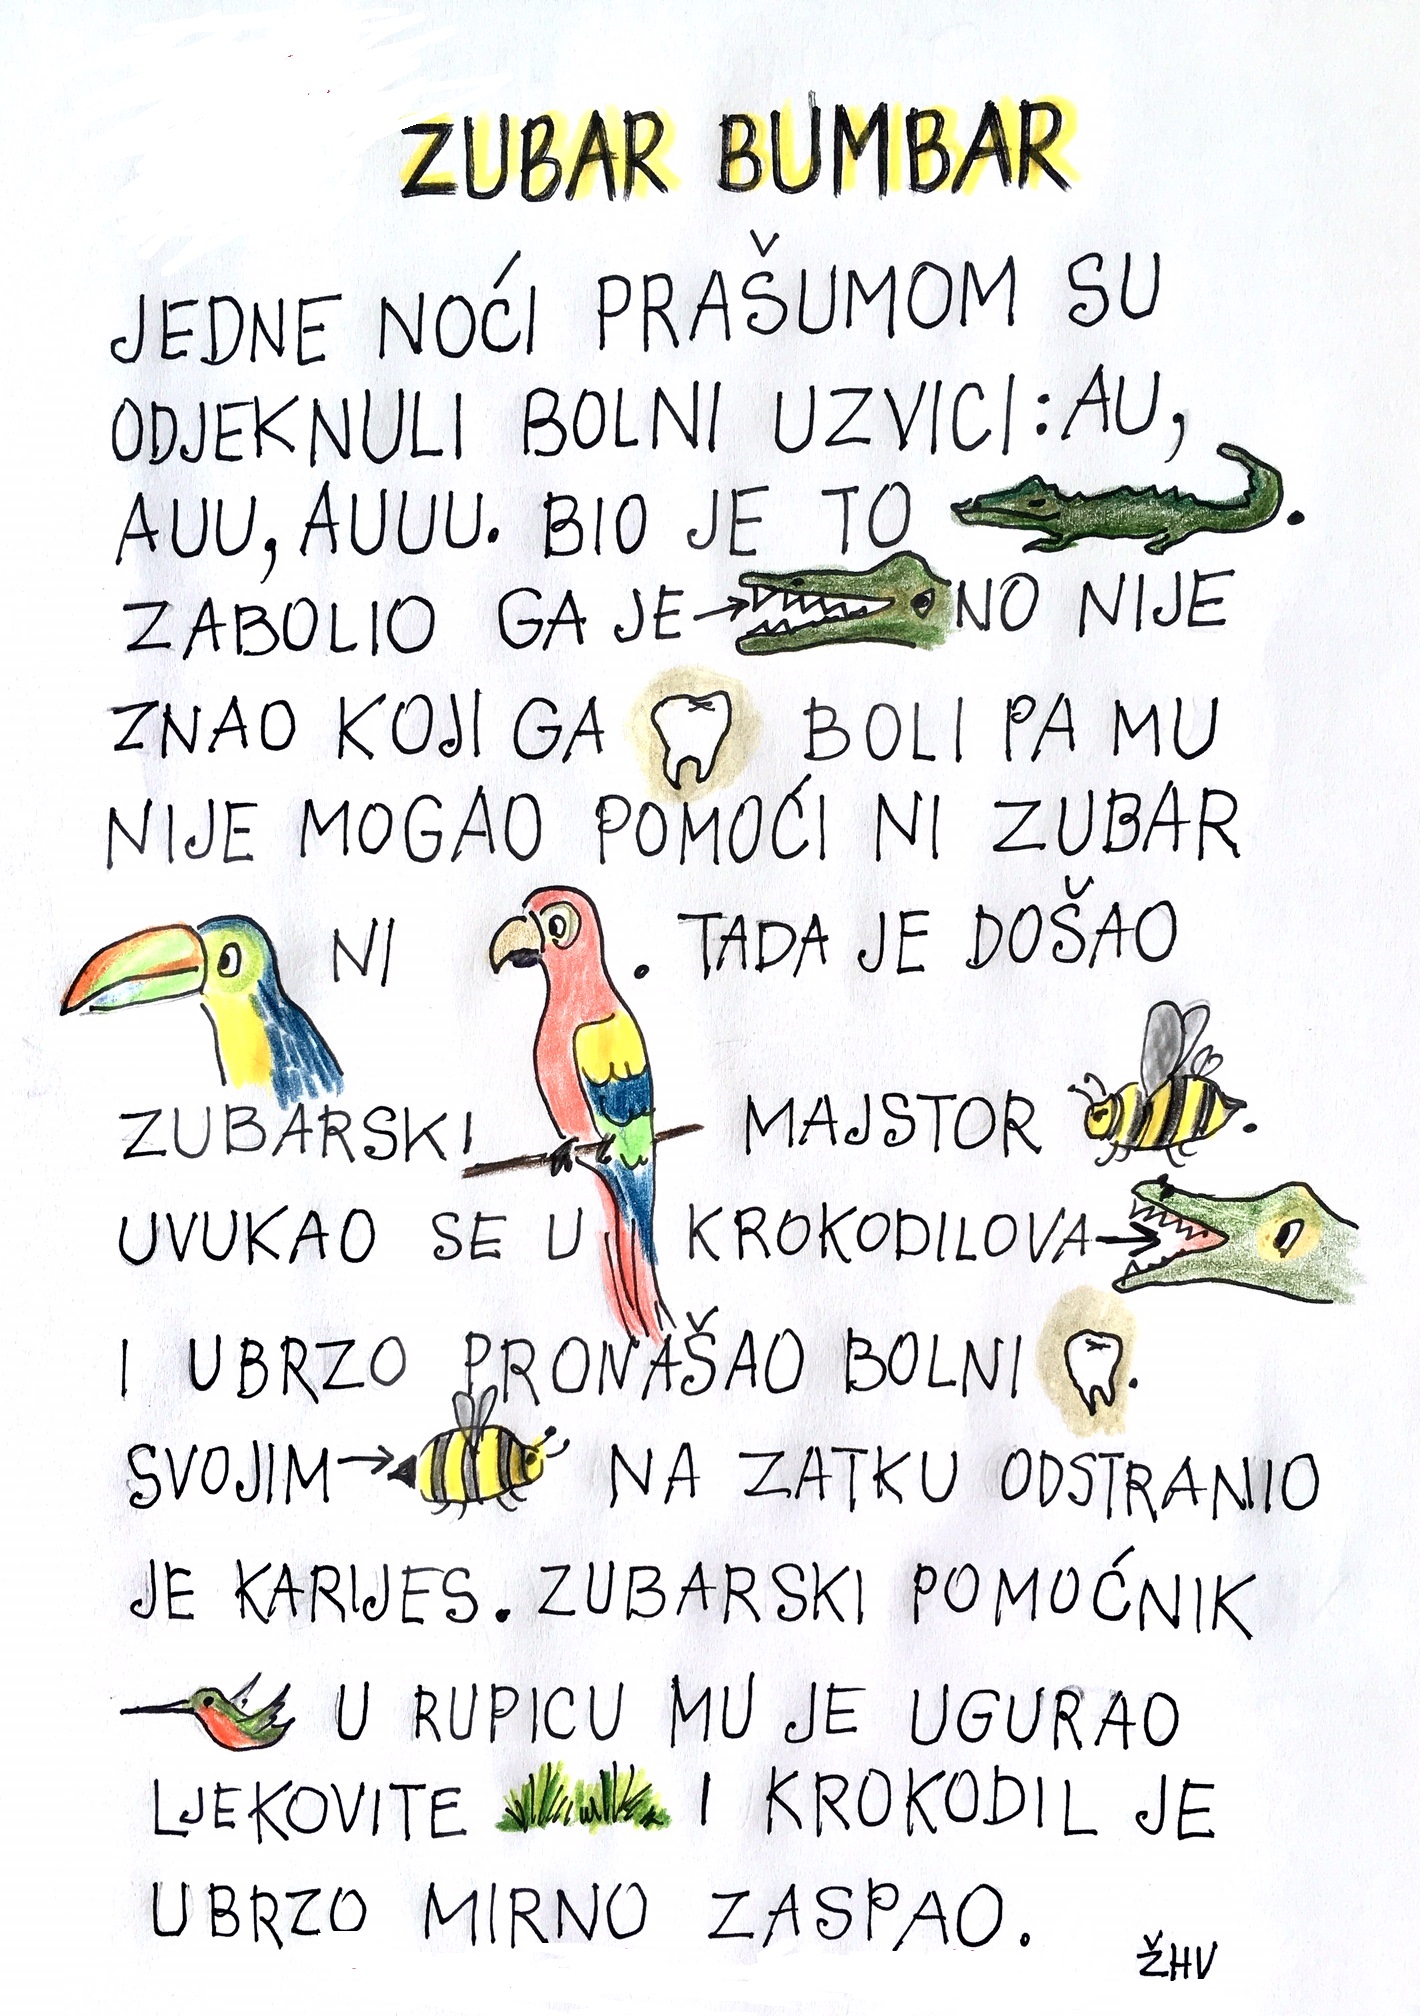 ZUBAR BUMBAR
JEDNE NOĆI PRAŠUMOM SU
ODJEKNULI BOLNI UZVICI: AU,
AUU, AUUU. BIO JE TO .
ZABOLIO GA JE NO NIJE
ZNAO KOJI GA BOLI PA MU
NIJE MOGAO POMOĆI NI ZUBAR
NI . TADA JE DOŠAO
ZUBARSKI MAJSTOR .
UVUKAO SE U KROKODILOVA
I UBRZO PRONAŠAO BOLNI .
SVOJIM NA ZATKU ODSTRANIO
JE KARIJES. ZUBARSKI POMOĆNIK
U RUPICU MU JE UGURAO
LJEKOVITE I KROKODIL JE
UBRZO MIRNO ZASPAO.
ŽHV